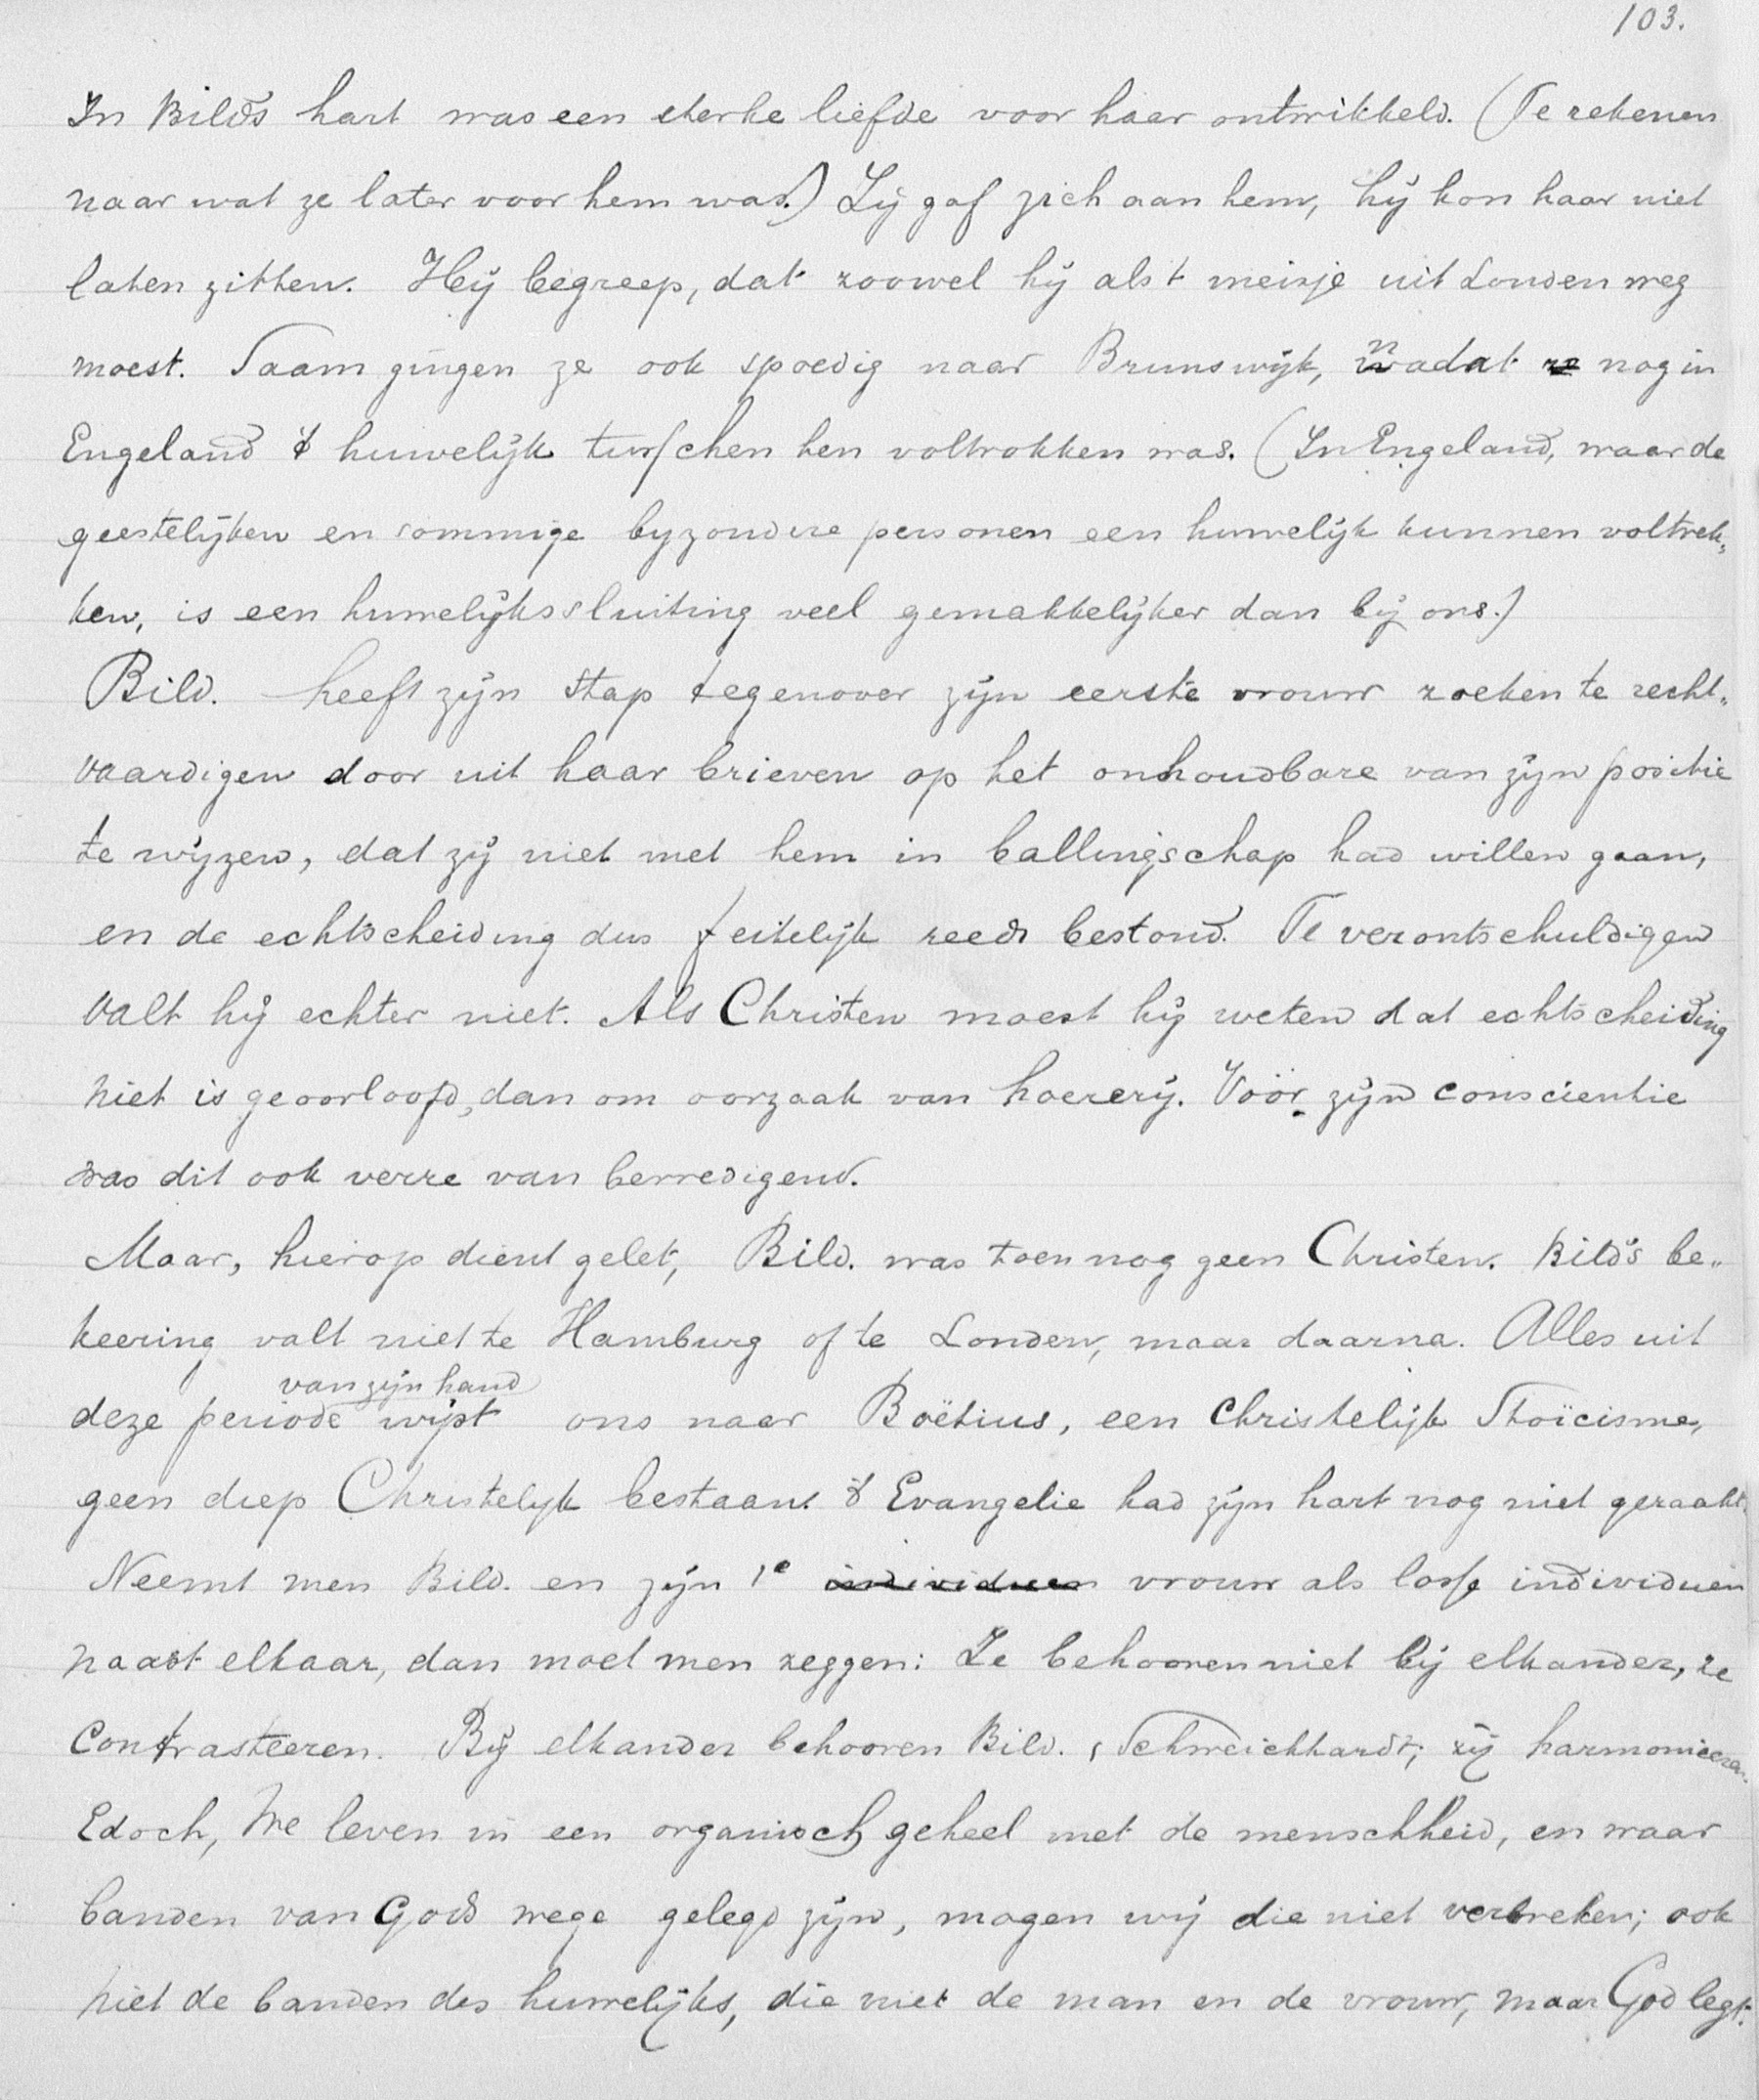 103.
In Bild's hart was een sterke liefde voor haar ontwikkeld. (Te rekenen
naar wat ze later voor hem was.) Zij gaf zich aan hem, hij kon haar niet
laten zitten. Hij begreep, dat zoowel hij als 't meisje uit Londen weg
moest. Saam gingen ze ook spoedig naar Brunswijk, nadat nog in
Engeland 't huwelijk tusschen hen voltrokken was. (In Engeland, waar de
geestelijken en sommige byzondere personen een huwelijk kunnen voltrek„
ken, is een huwelijkssluiting veel gemakkelijker dan bij ons.)
Bild. heeft zijn stap tegenover zijn eerste vrouw zoeken te recht„
vaardigen door uit haar brieven op het onhoudbare van zijn positie
te wijzen, dat zij niet met hem in ballingschap had willen gaan,
en de echtscheiding dus feitelijk reeds bestond. Te verontschuldigen
valt hij echter niet. Als Christen moest hij weten dat echtscheiding
niet is geoorloofd, dan om oorzaak van hoererij. Vóór zijn conscientie
was dit ook verre van bevredigend.
Maar, hierop dient gelet, Bild. was toen nog geen Christen. Bild's be„
keering valt niet te Hamburg of te Londen, maar daarna. Alles uit
deze periode van zijn hand wijst ons naar Boëtius, een Christelijk Stoïcisme,
geen diep Christelijk bestaan. 't Evangelie had zijn hart nog niet geraakt.
Neemt men Bild. en zijn 1e individuen vrouw als losse individuen
naast elkaar, dan moet men zeggen: Ze behooren niet bij elkander, ze
contrasteeren. Bij elkander behooren Bild. & Schweickhardt; zij harmonieeren.
Edoch, We leven in een organisch geheel met de menschheid, en waar
banden van Gods wege gelegd zijn, mogen wij die niet verbreken; ook
niet de banden des huwelijks, die niet de man en de vrouw, maar God legt.